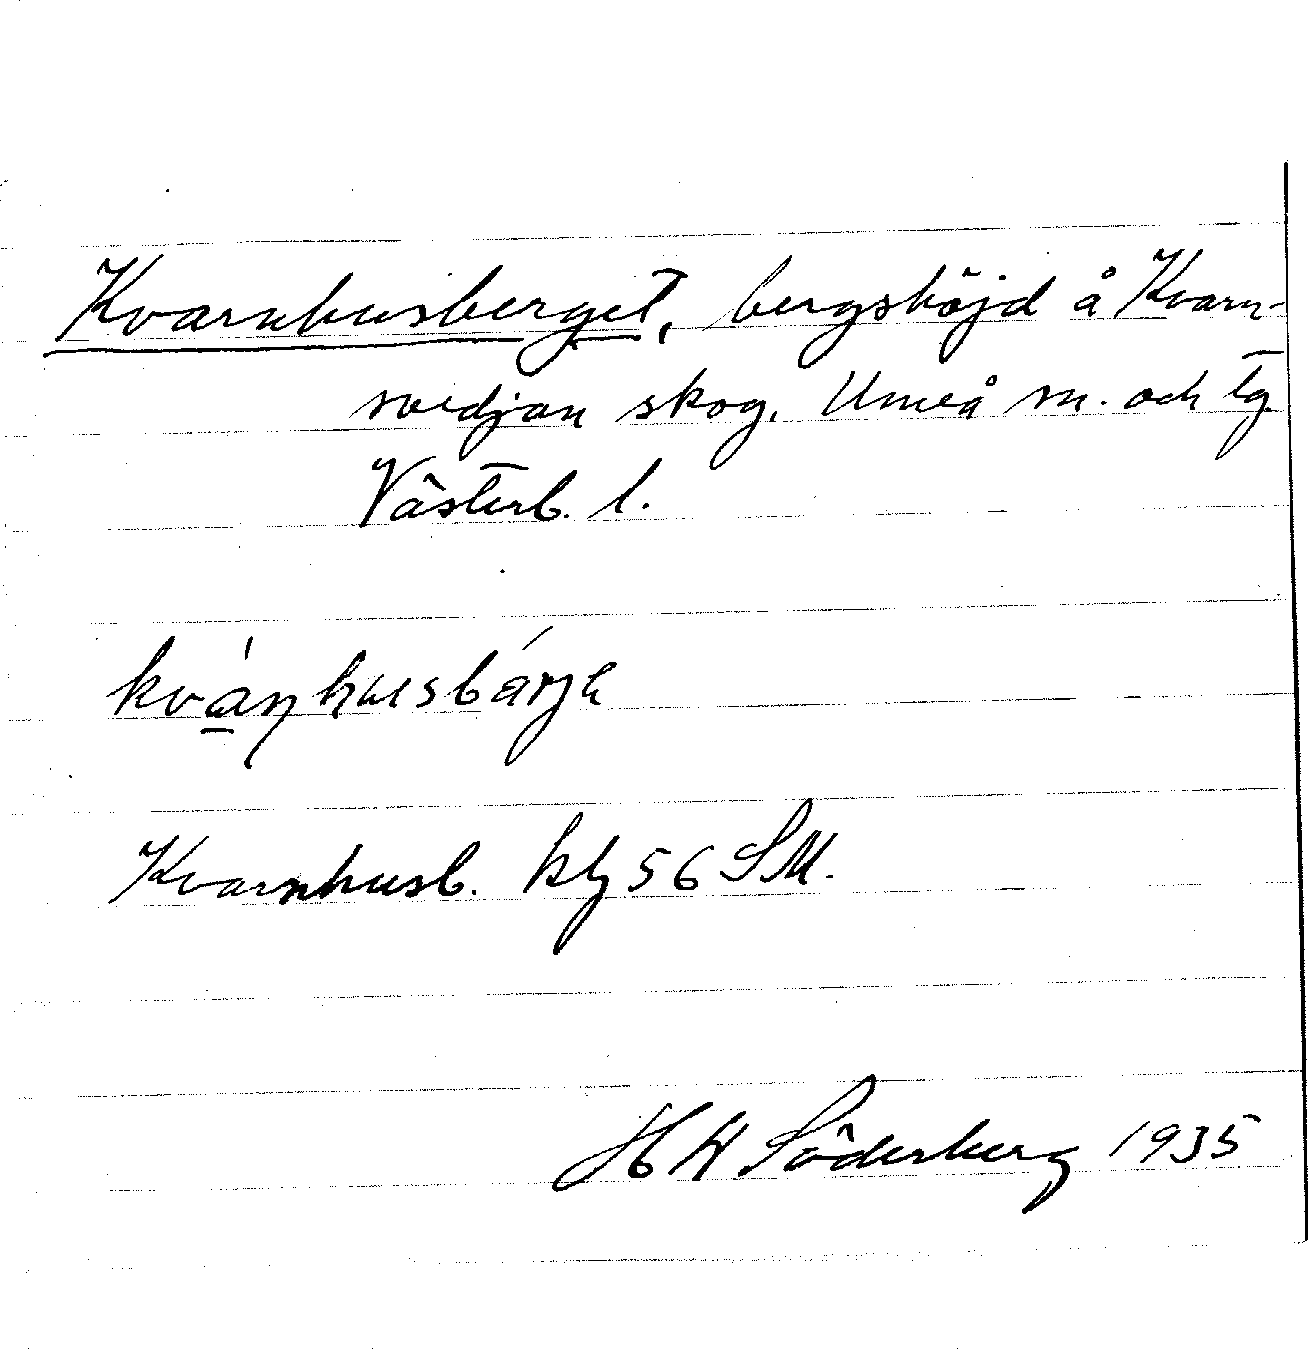 Kvarnhusberget, bergshöjd å Kvarn-
svedjan skog, Umeå sn. och tg
Västerb. l.
Kvarnhusb. kbl 56 SM.
H W Söderberg 1935